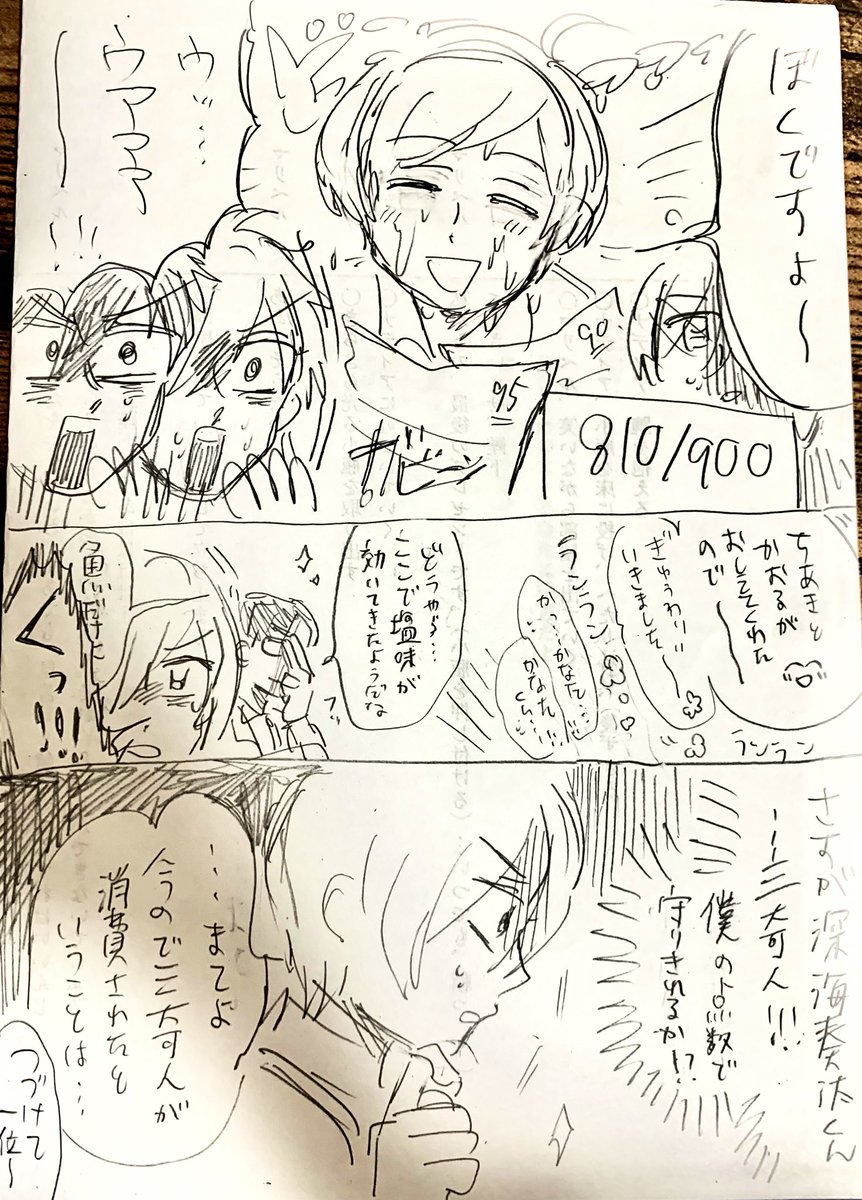 ぼくですよ〜
ウッ…
ウアアア
〜
!!!
90
95
810/900
ちあきと
かおるが
おしえてくれた
ので〜
ぎゅうわり!!
いきました〜
ランラン
ランラン
かっ…かなた…!!
かなたくん…!!
どうやら…
ここで塩味が
効いてきたようだな
フッ
魚座に
くっ
!!!
さすが深海奏汰くん
三奇人!!!
僕の点数で
守りきれるか!?
…まてよ
今ので三奇人が
消費されたと
いうことは…
つづけて
一位〜